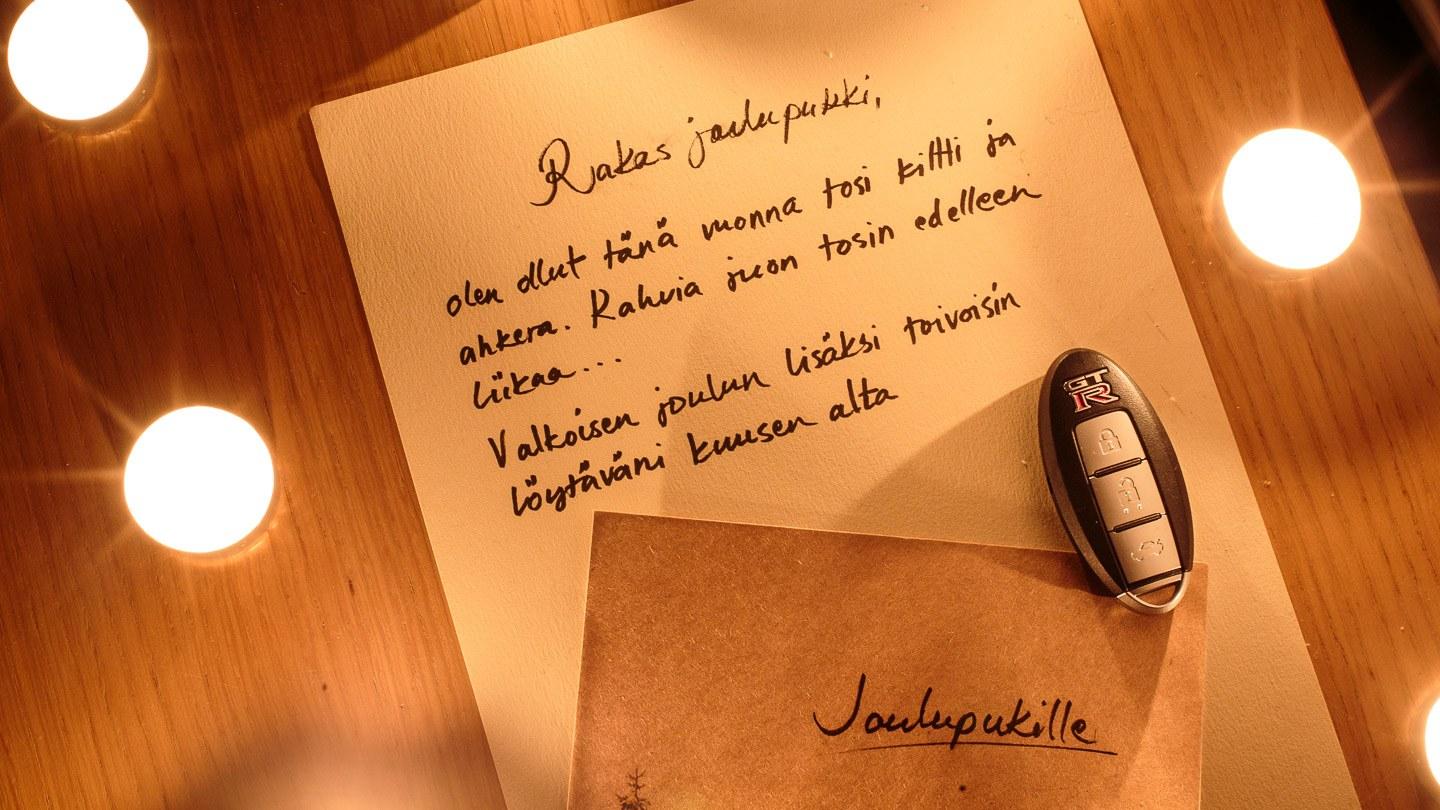 Rakas joulupukki,
olen ollut tänä vuonna tosi kiltti ja
ahkera. Kahvia juon tosin edelleen
liikaa...
Valkoisen joulun lisäksi toivoisin
löytäväni kuusen alta
GT
R
Joulupukille